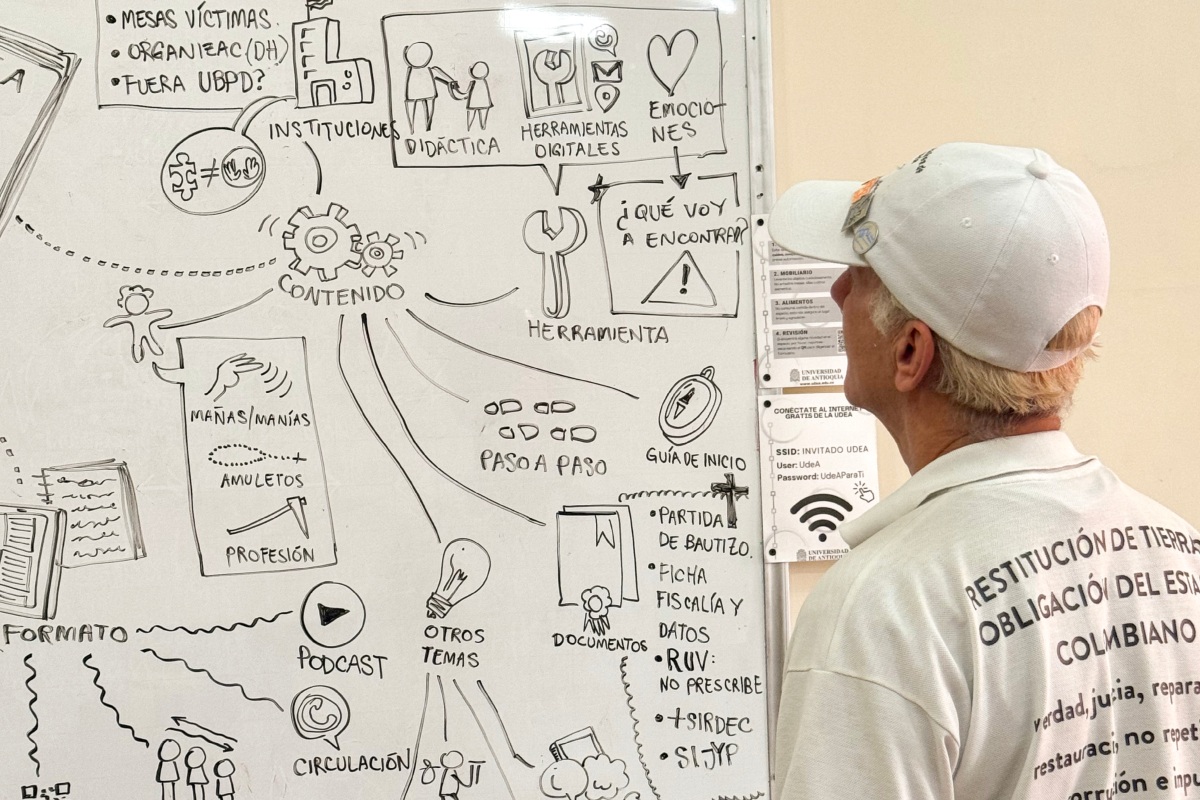 • MESAS VÍCTIMAS.
• ORGANIZAC (DH)
• FUERA UBPD?
INSTITUCIONES
DIDÁCTICA
HERRAMIENTAS
DIGITALES
EMOCIO-
NES
¿QUÉ VOY
A ENCONTRAR?
CONTENIDO
HERRAMIENTA
MAÑAS/MANÍAS
AMULETOS
PROFESIÓN
PASO A PASO
GUÍA DE INICIO
OTROS
TEMAS
DOCUMENTOS
• PARTIDA
DE BAUTIZO.
• FICHA
FISCALÍA Y
DATOS
• RUV:
NO PRESCRIBE
• +SIRDEC
• SIJYP
FORMATO
PODCAST
CIRCULACIÓN
2. MOBILIARIO
3. ALIMENTOS
4. REVISIÓN
UNIVERSIDAD
DE ANTIOQUIA
www.udea.edu.co
CONÉCTATE AL INTERNET
GRATIS DE LA UDEA
SSID: INVITADO UDEA
User: UdeA
Password: UdeAParaTi
UNIVERSIDAD
DE ANTIOQUIA
RESTITUCIÓN DE TIERRA
OBLIGACIÓN DEL ESTA
COLOMBIANO
verdad, justicia, repara
no repet